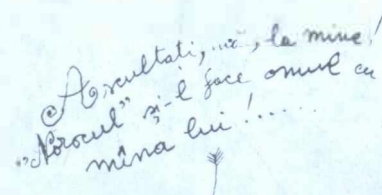 Ascultati,... , la mine!
"Norocul" și-l face omul cu
mîna lui!......